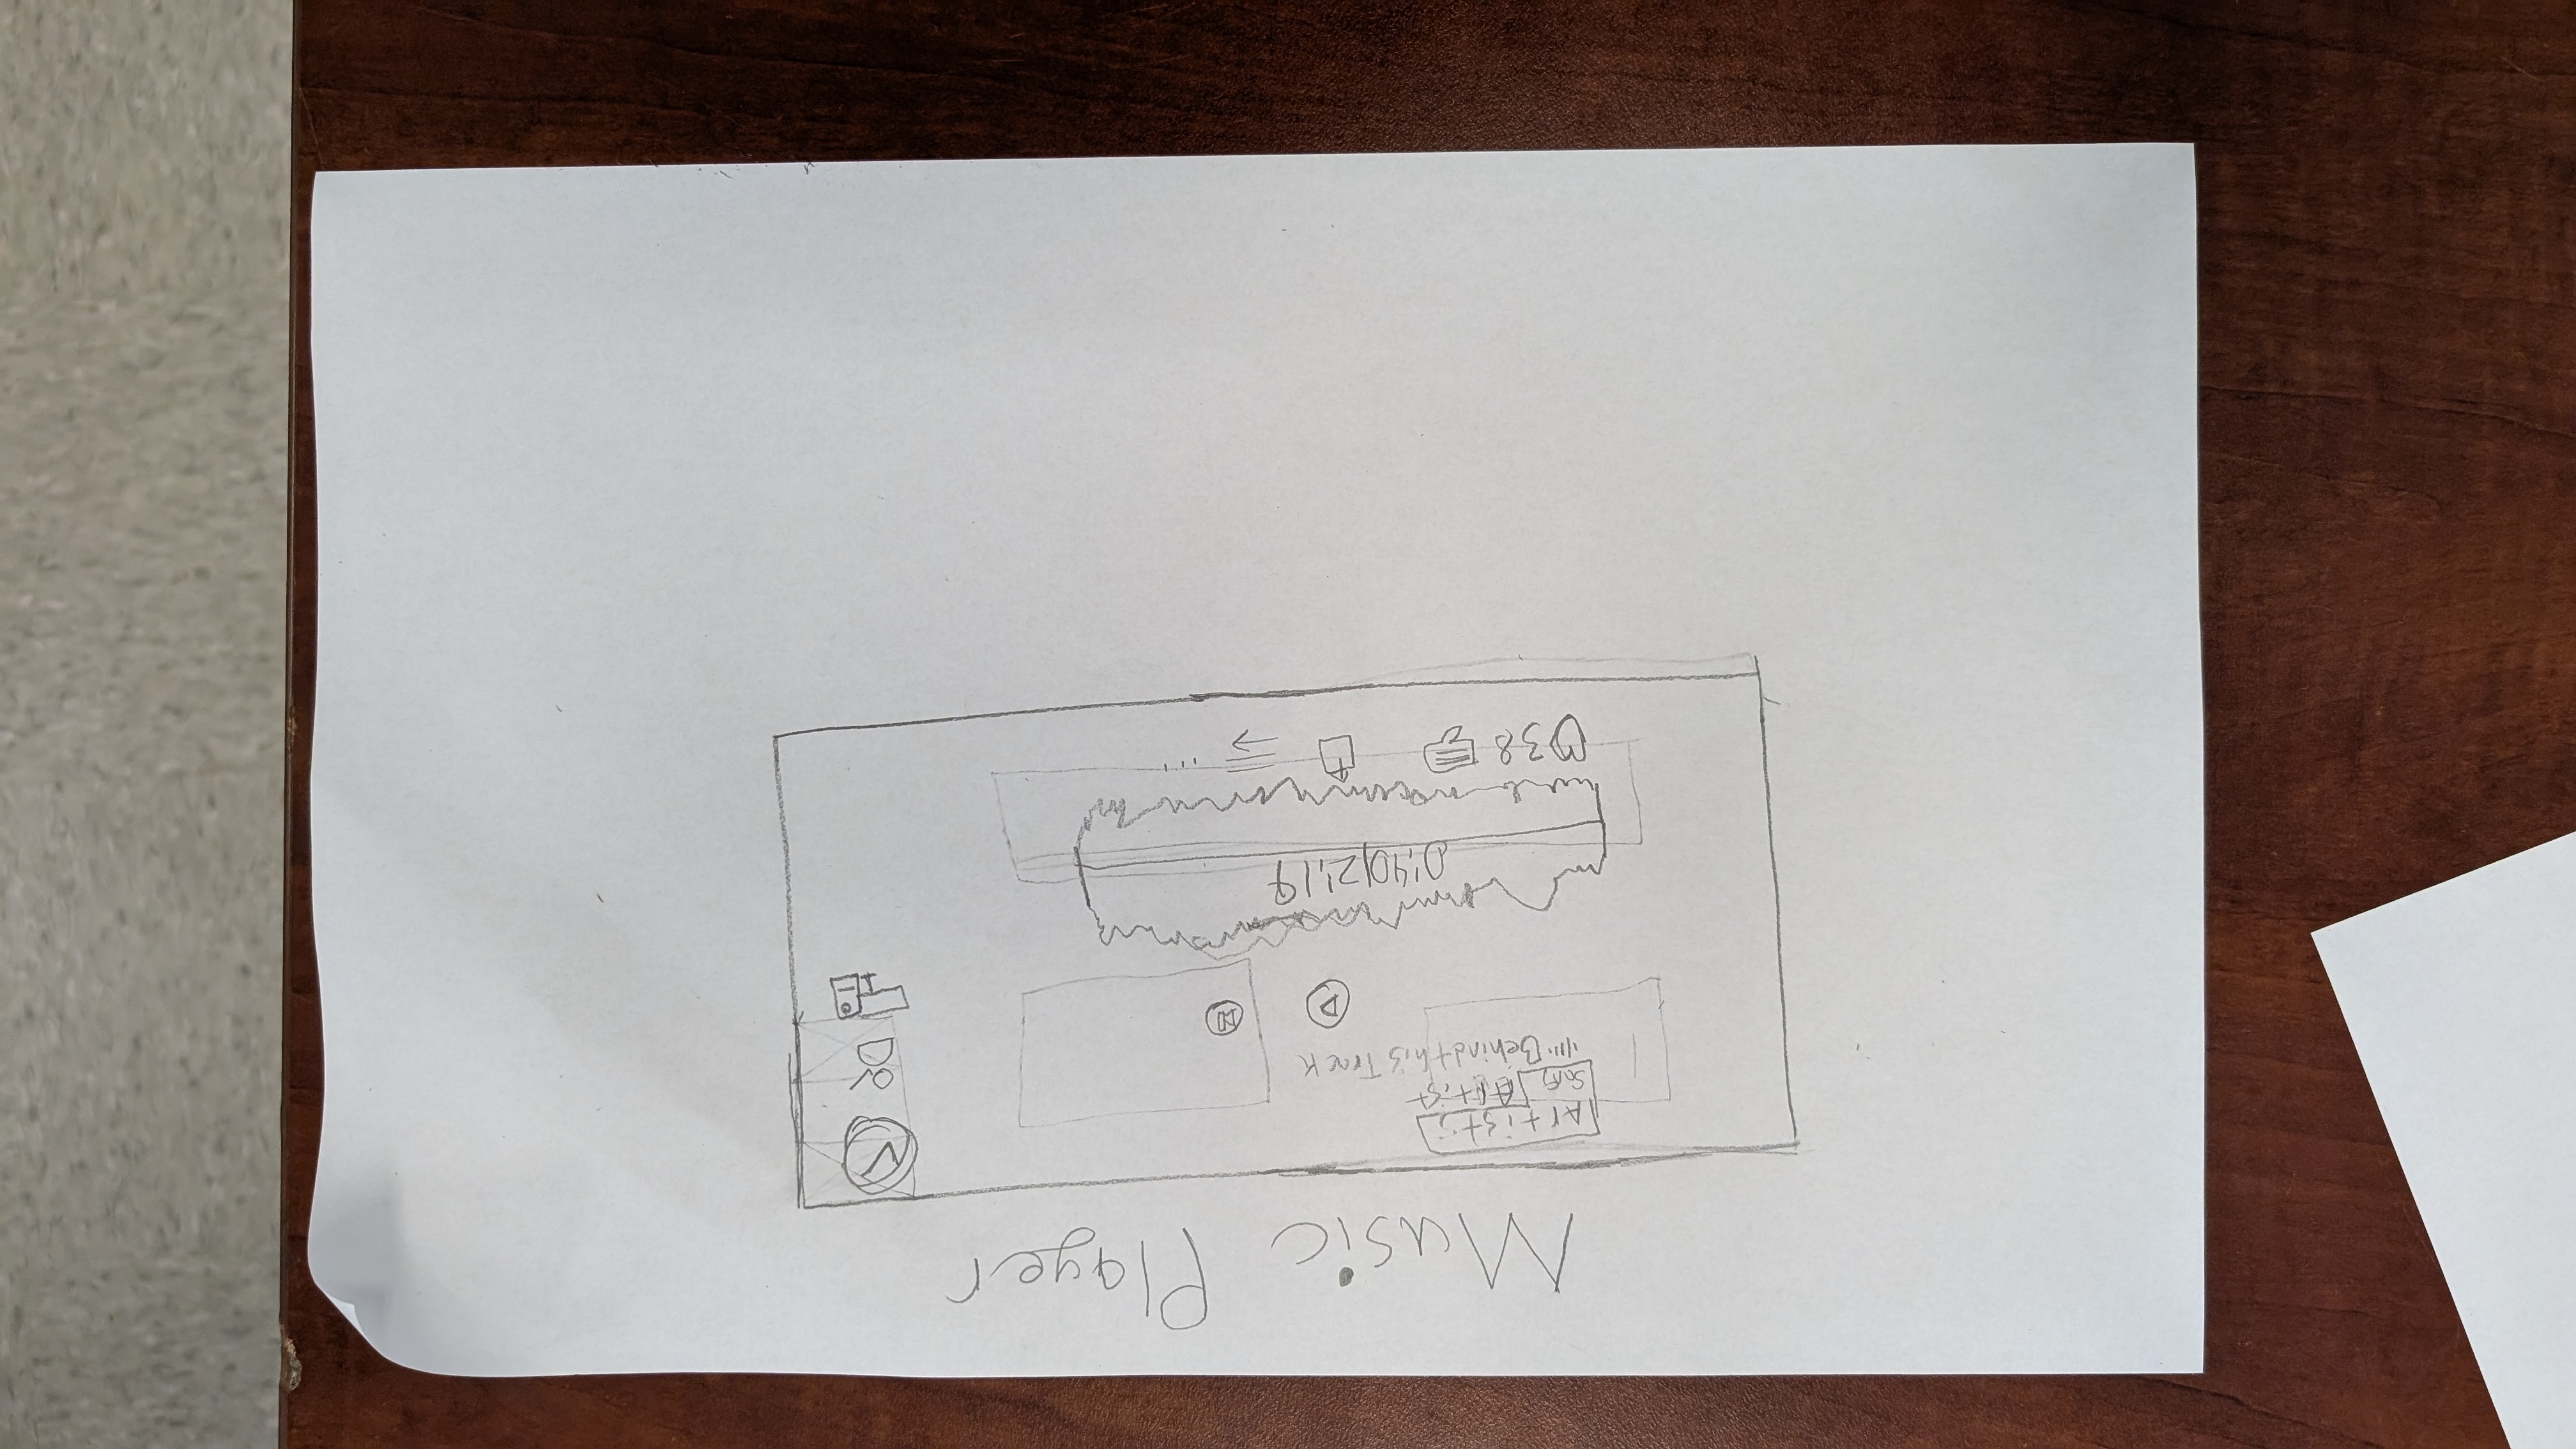 Music Player
Artist
Song Artist
Behind this Track
0:40|2:19
38
...